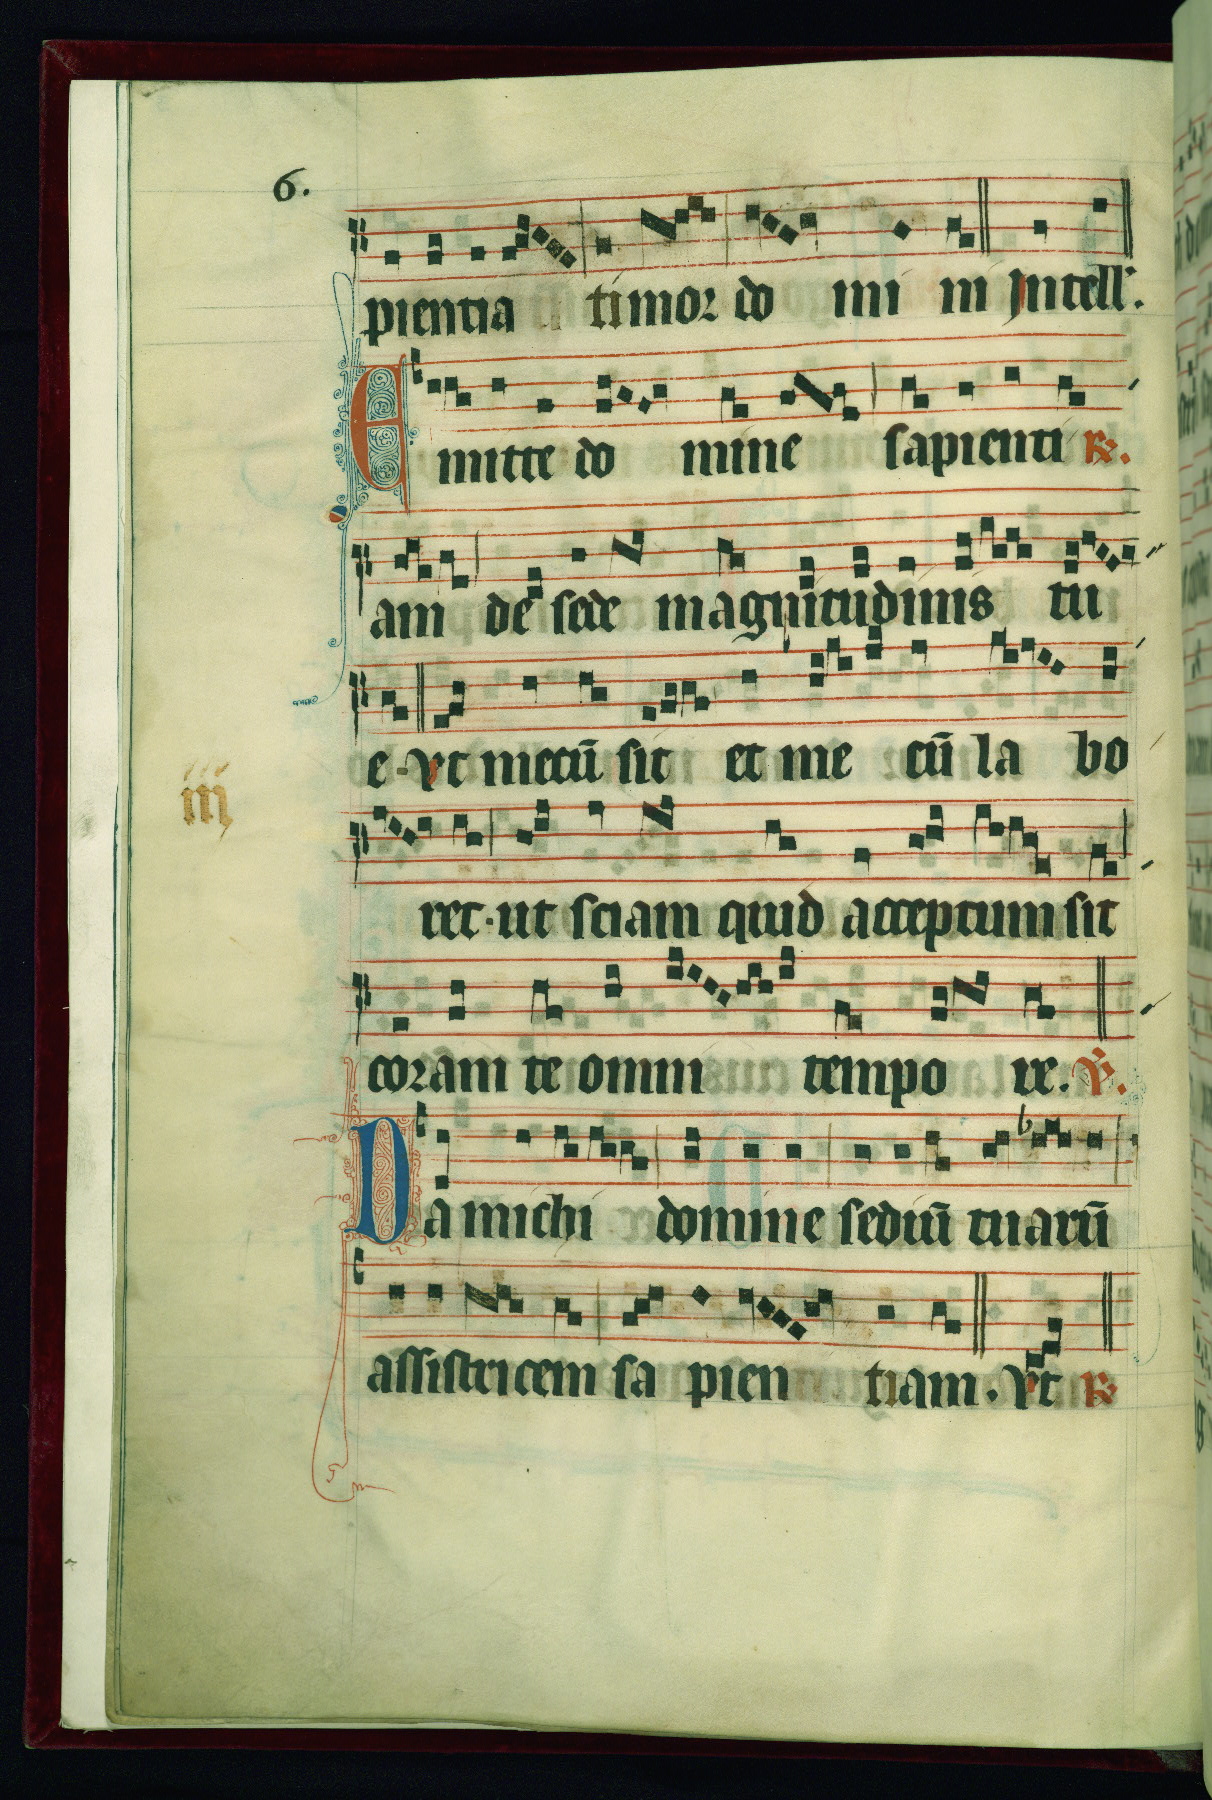 6.
pientia timor do mi ni Intell'.
Emitte do mine sapienti R.
am de sede magnitudinis tu
e. Vt mecū sit et me cū la bo
iii
ret. ut sciam quid acceptum sit
coram te omni tempo re. V.
Da michi domine sediū tuarū
assistricem sa pien tiam. Vt R